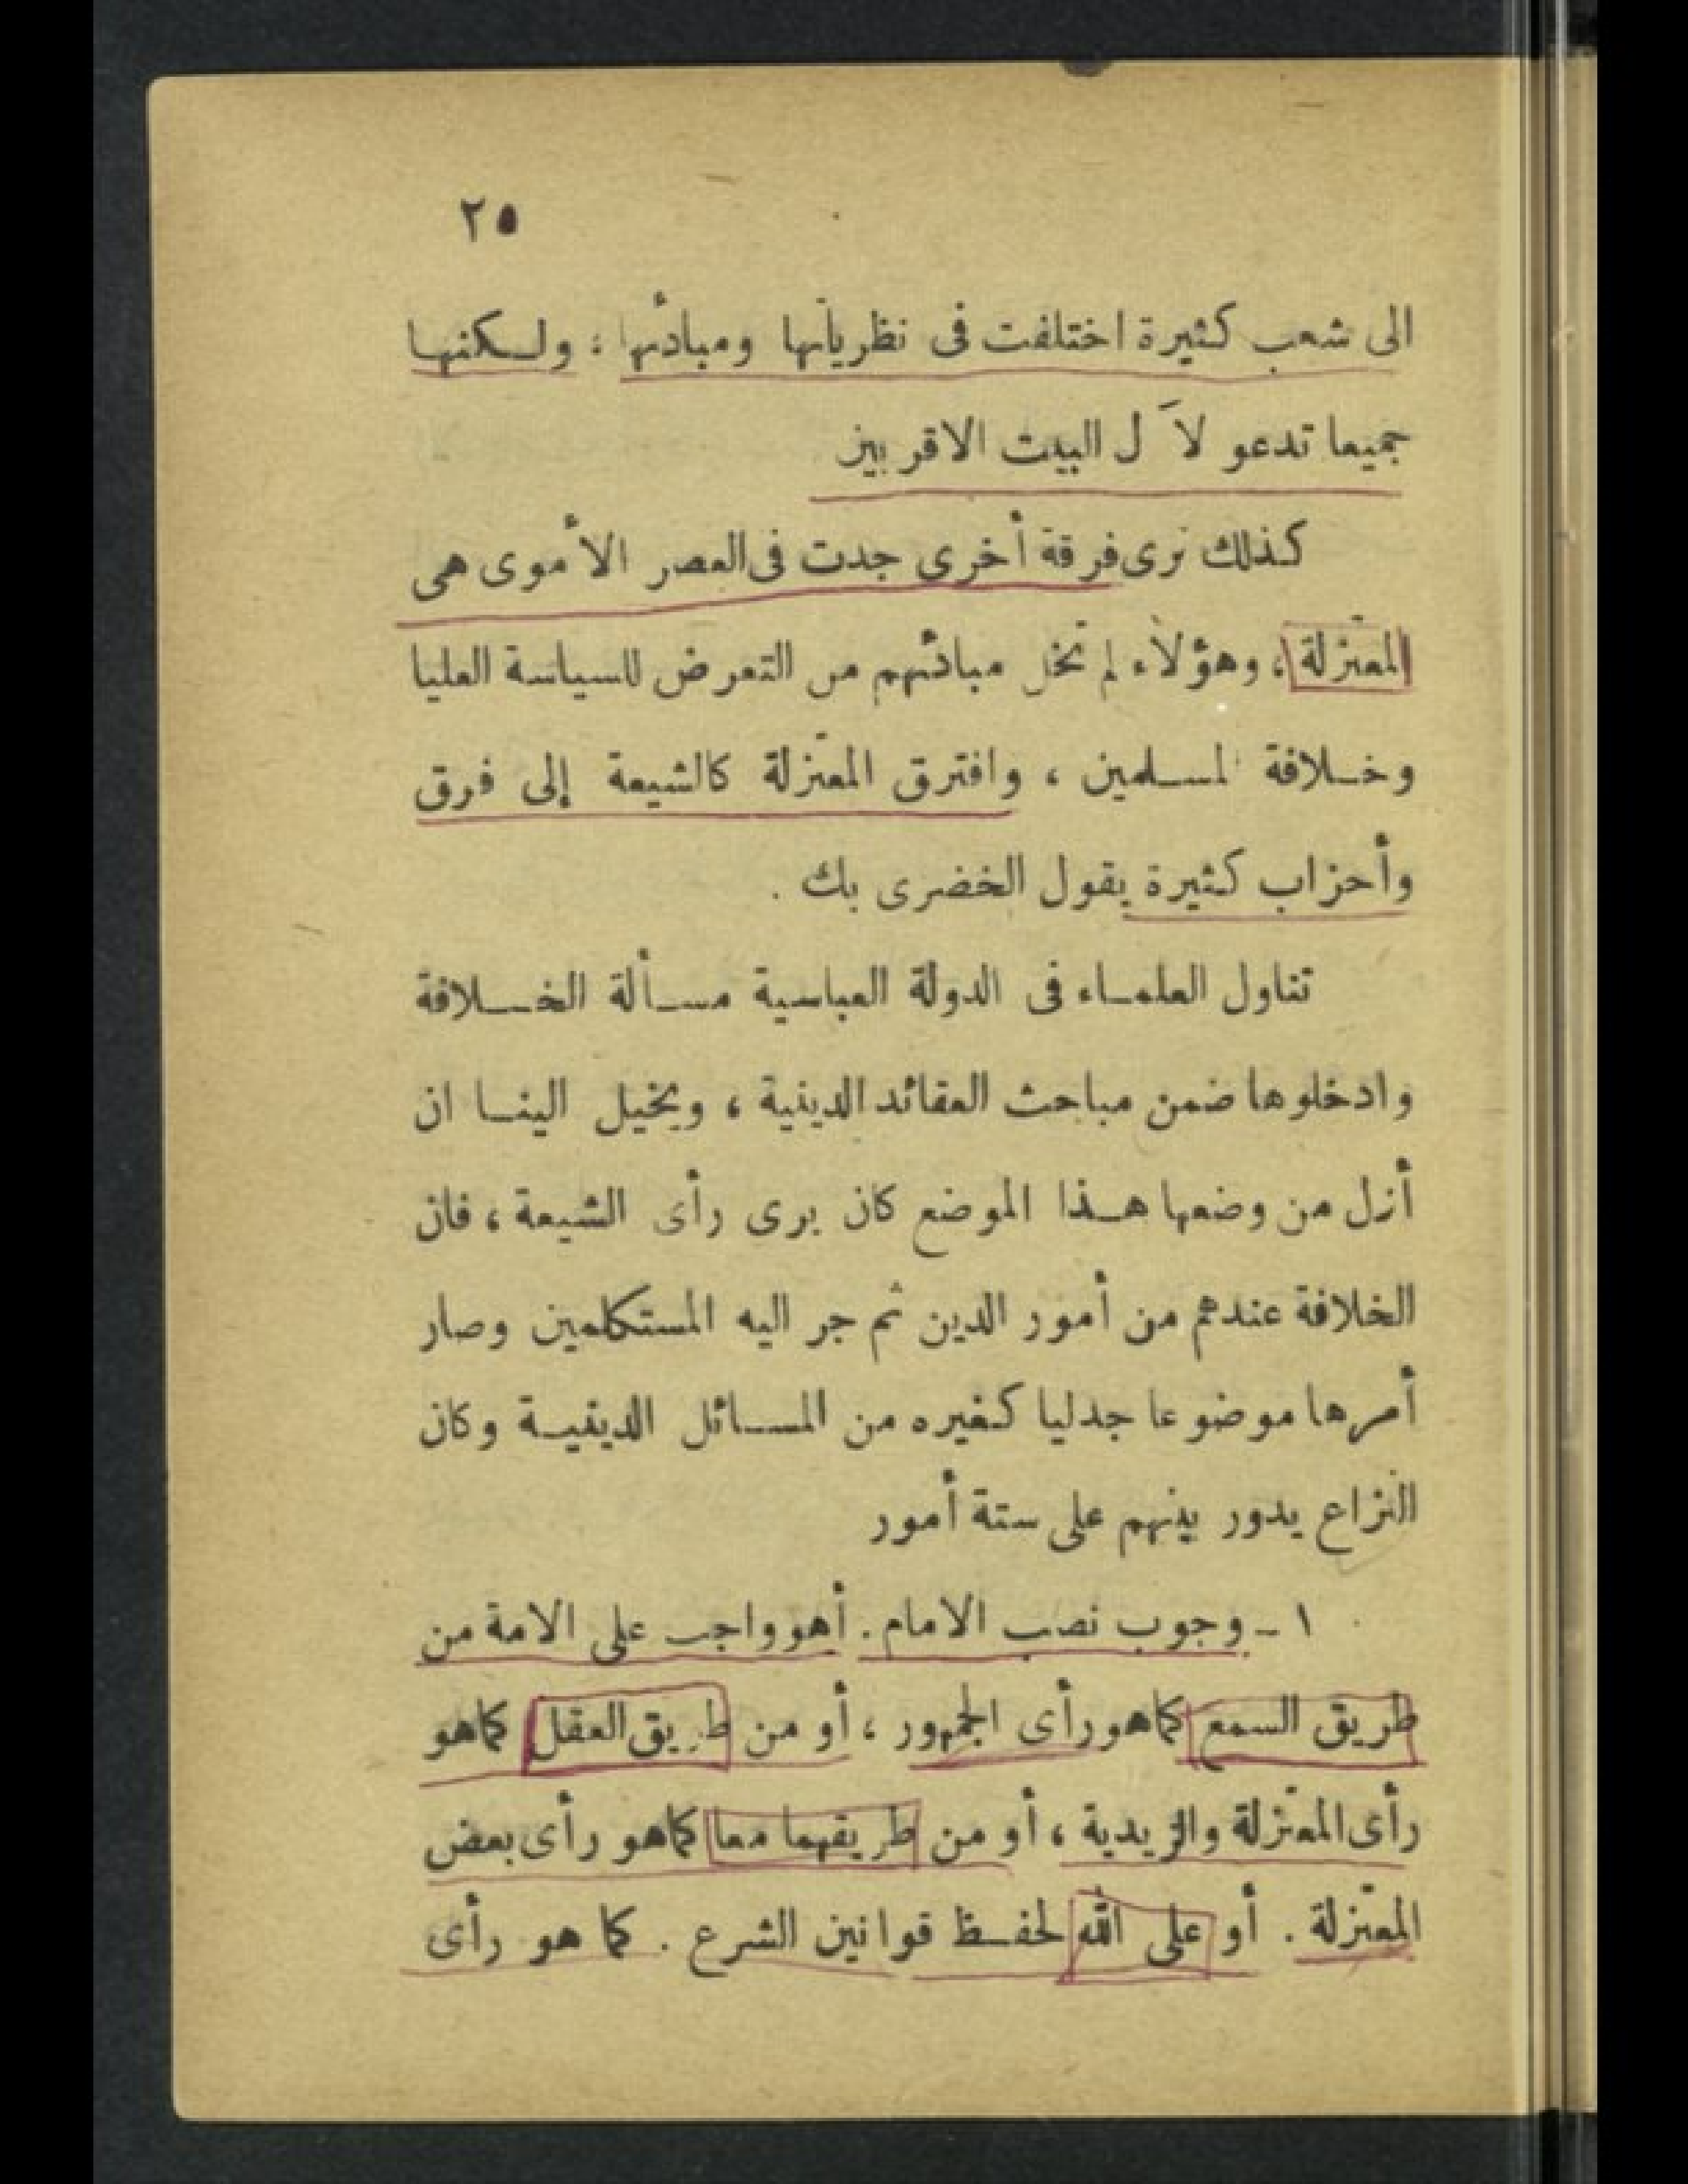 ٢٥
الى شعب كثيرة اختلفت فى نظرياتها ومبادئها ؛ ولـكنهـا
جميعا تدعو لآ ل البيت الاقربين
كذلك نرى فرقة أخرى جدت فى العصر الأموى هى
المعتزلة ، وهؤلاء لم تخل مبادئهم من التعرض للسياسة العليا
وخـلافة المسـلمين ، وافترق المعتزلة كالشيعة إلى فرق
وأحزاب كثيرة يقول الخضرى بك .
تناول العلمـاء فى الدولة العباسية مسـألة الخـلافة
وادخلوها ضمن مباحث العقائد الدينية ، ويخيل الينـا ان
أزل من وضعها هـذا الموضع كان يرى رأى الشيعة ، فان
الخلافة عندهم من أمور الدين ثم جر اليه المستكلمين وصار
أمرها موضوعا جدليا كغيره من المسـائل الدينيـة وكان
النزاع يدور بينهم على ستة أمور
١ - وجوب نصب الامام . أهو واجب على الامة من
طريق السمع كما هو رأى الجمهور ، أو من طريق العقل كما هو
رأى المعتزلة والزيدية ، أو من طريقهما معا كما هو رأى بعض
المعتزلة . أو على الله لحفـظ قوانين الشرع . كما هو رأى